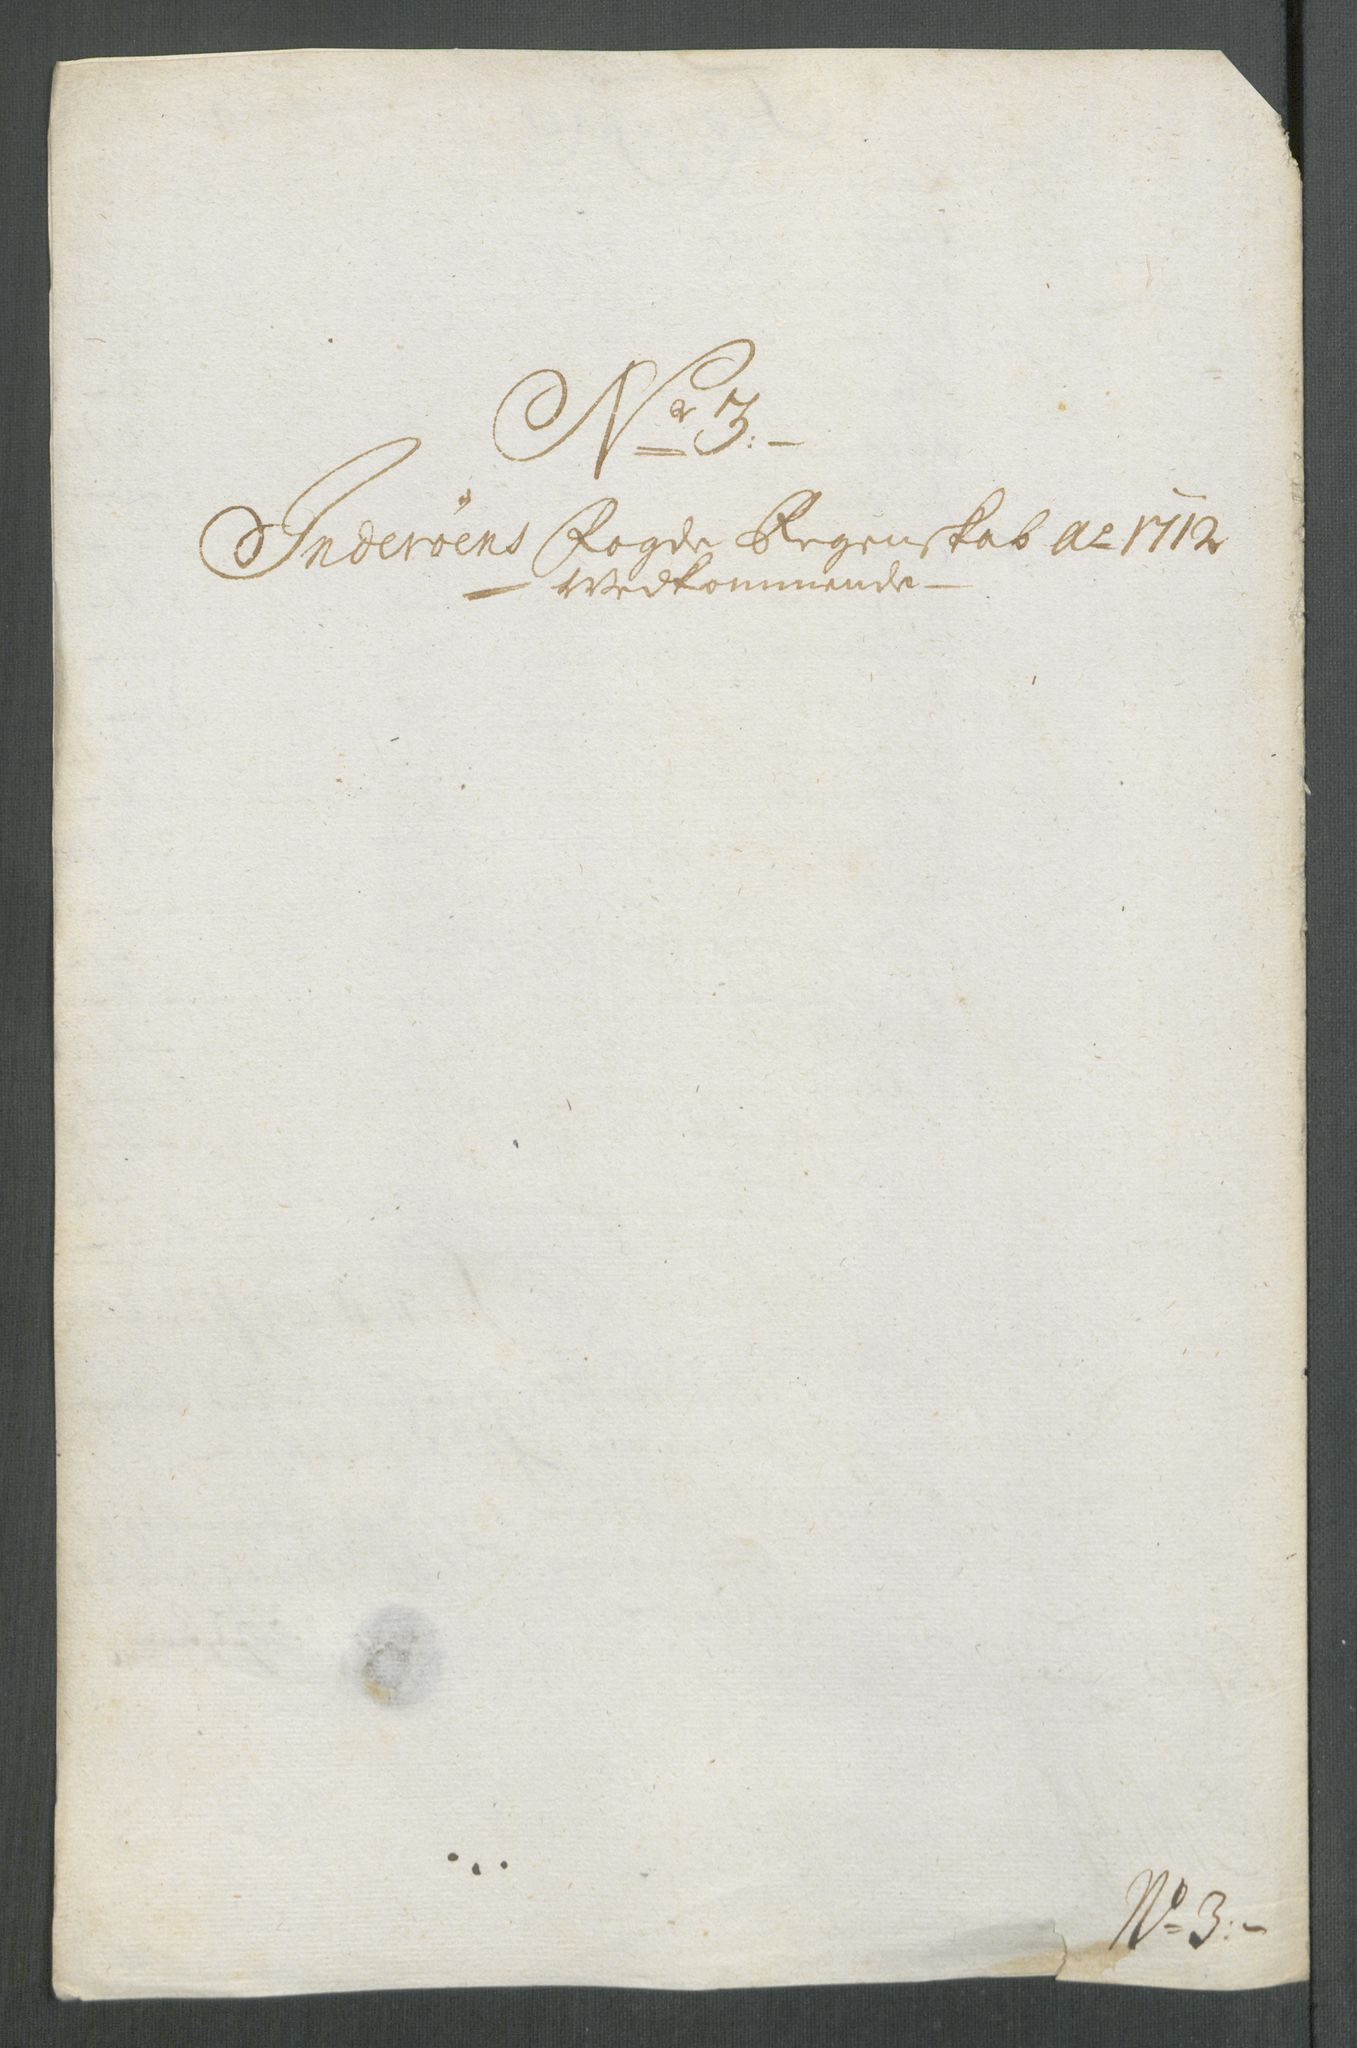 Nr 3:-
Inderöens Fogde Regenskab Ao 1712
- Vedkommende -
No 3:-